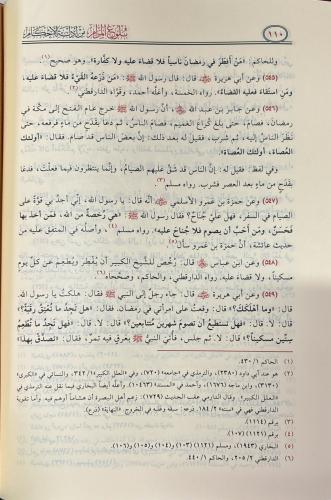 ١١٠
بلوغ المرام من أدلة الأحكام
وللحاكم: «مَنْ أفطرَ في رمضان ناسياً فلا قضاءَ عليه ولا كفارة». وهو صحيح(١).
(٥٤٥) وعن أبي هريرة ﷺ قال: قال رسول الله ﷺ: «مَن ذَرَعَهُ القَيْءُ فلا قضاءَ عليه،
ومَنِ استقاءَ فعليه القضاءُ». رواه الخمسة، وأعلَّه أحمد، وقوَّاه الدارقطني(٢).
(٥٤٦) وعن جابر بن عبد الله، أنَّ رسول الله ﷺ خرج عام الفتح إلى مكة في
رمضان، فصَامَ، حتى بلغ كُراعَ الغَمِيمِ، فصام الناسُ، ثم دعا بقَدَحٍ من ماءٍ فرفعه، حتى
نَظَرَ الناسُ إليه، ثم شَرِبَ، فقيل له بعد ذلك: إنَّ بعضَ الناس قد صام. فقال: «أولئك
العُصاةُ، أولئك العُصاةُ».
وفي لفظ: فقيل له: إنَّ الناس قد شَقَّ عليهم الصيامُ، وإنَّما ينتظرون فيما فعلتَ، فدعا
بقَدَحٍ من ماءٍ بعد العصر فشرب. رواه مسلم(٣).
(٥٤٧) وعن حمزة بن عمرو الأسلمي أنه قال: يا رسول الله، إنِّي أجدُ بي قوَّةً على
الصيام في السفر، فهل عليَّ جُناحٌ؟ فقال رسول الله ﷺ: «هي رُخْصةٌ من الله، فمَن أخذَ بها
فحَسَنٌ، ومَن أحَبَّ أن يصومَ فلا جُناحَ عليه». رواه مسلم(٤)، وأصله في المتفق عليه من
حديث عائشة، أنَّ حمزة بن عمرو سأل(٥).
(٥٤٨) وعن ابن عباس قال: رُخِّصَ للشيخ الكبير أن يُفْطِرَ ويُطعِمَ عن كلِّ يومٍ
مسكيناً، ولا قضاءَ عليه. رواه الدارقطني، والحاكم، وصحَّحاه(٦).
(٥٤٩) وعن أبي هريرة قال: جاء رجلٌ إلى النبي ﷺ فقال: هلكتُ يا رسول الله.
قال: «وما أهْلَكَكَ؟» قال: وقعتُ على امرأتي في رمضان. فقال: «هل تَجِدُ ما تُعْتِقُ رقبةً؟»
قال: لا. قال: «فهل تستطيعُ أن تصومَ شهرين متتابعين؟» قال: لا. قال: «فهل تَجِدُ ما تُطْعِمُ
ستين مسكيناً؟» قال: لا. ثم جلس، فأُتيَ النبيُّ ﷺ بعَرَقٍ فيه تَمْرٌ، فقال: «تصدَّقْ بهذا»
(١) الحاكم ٤٣٠/١.
(٢) أبو داود (٢٣٨٠)، والترمذي في «جامعه» (٧٢٠)، وفي «العلل الكبير» ٣٤٢/١، والنسائي في «الكبرى»
(٣١٣٠)، وابن ماجه (١٦٧٦)، وأحمد في «المسند» (١٠٤٦٣). وأعلَّه أيضاً البخاري فيما نقله عنه الترمذي في
(٣) برقم (١١١٤).
(٤) برقم (١١٢١) (١٠٧).
(٥) البخاري (١٩٤٣)، ومسلم (١١٢١) (١٠٣) و(١٠٤) و(١٠٥) و(١٠٦).
(٦) الدارقطني ٢٠٥/٢، والحاكم ٤٤٠/١.